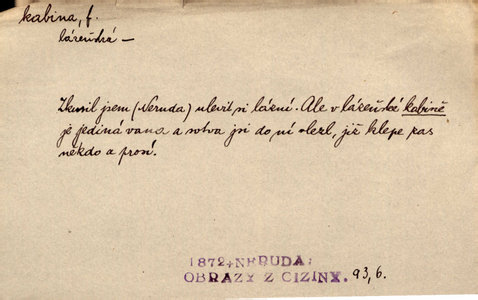 kabina, f.
lázeňská —
Zkusil jsem (Neruda) ulevit si lázní. Ale v lázeňské kabině
je jediná vana a sotva jsi do ní vlezl, již klepe zas
někdo a prosí.
1872, NERUDA:
OBRAZY Z CIZINY. 93,6.